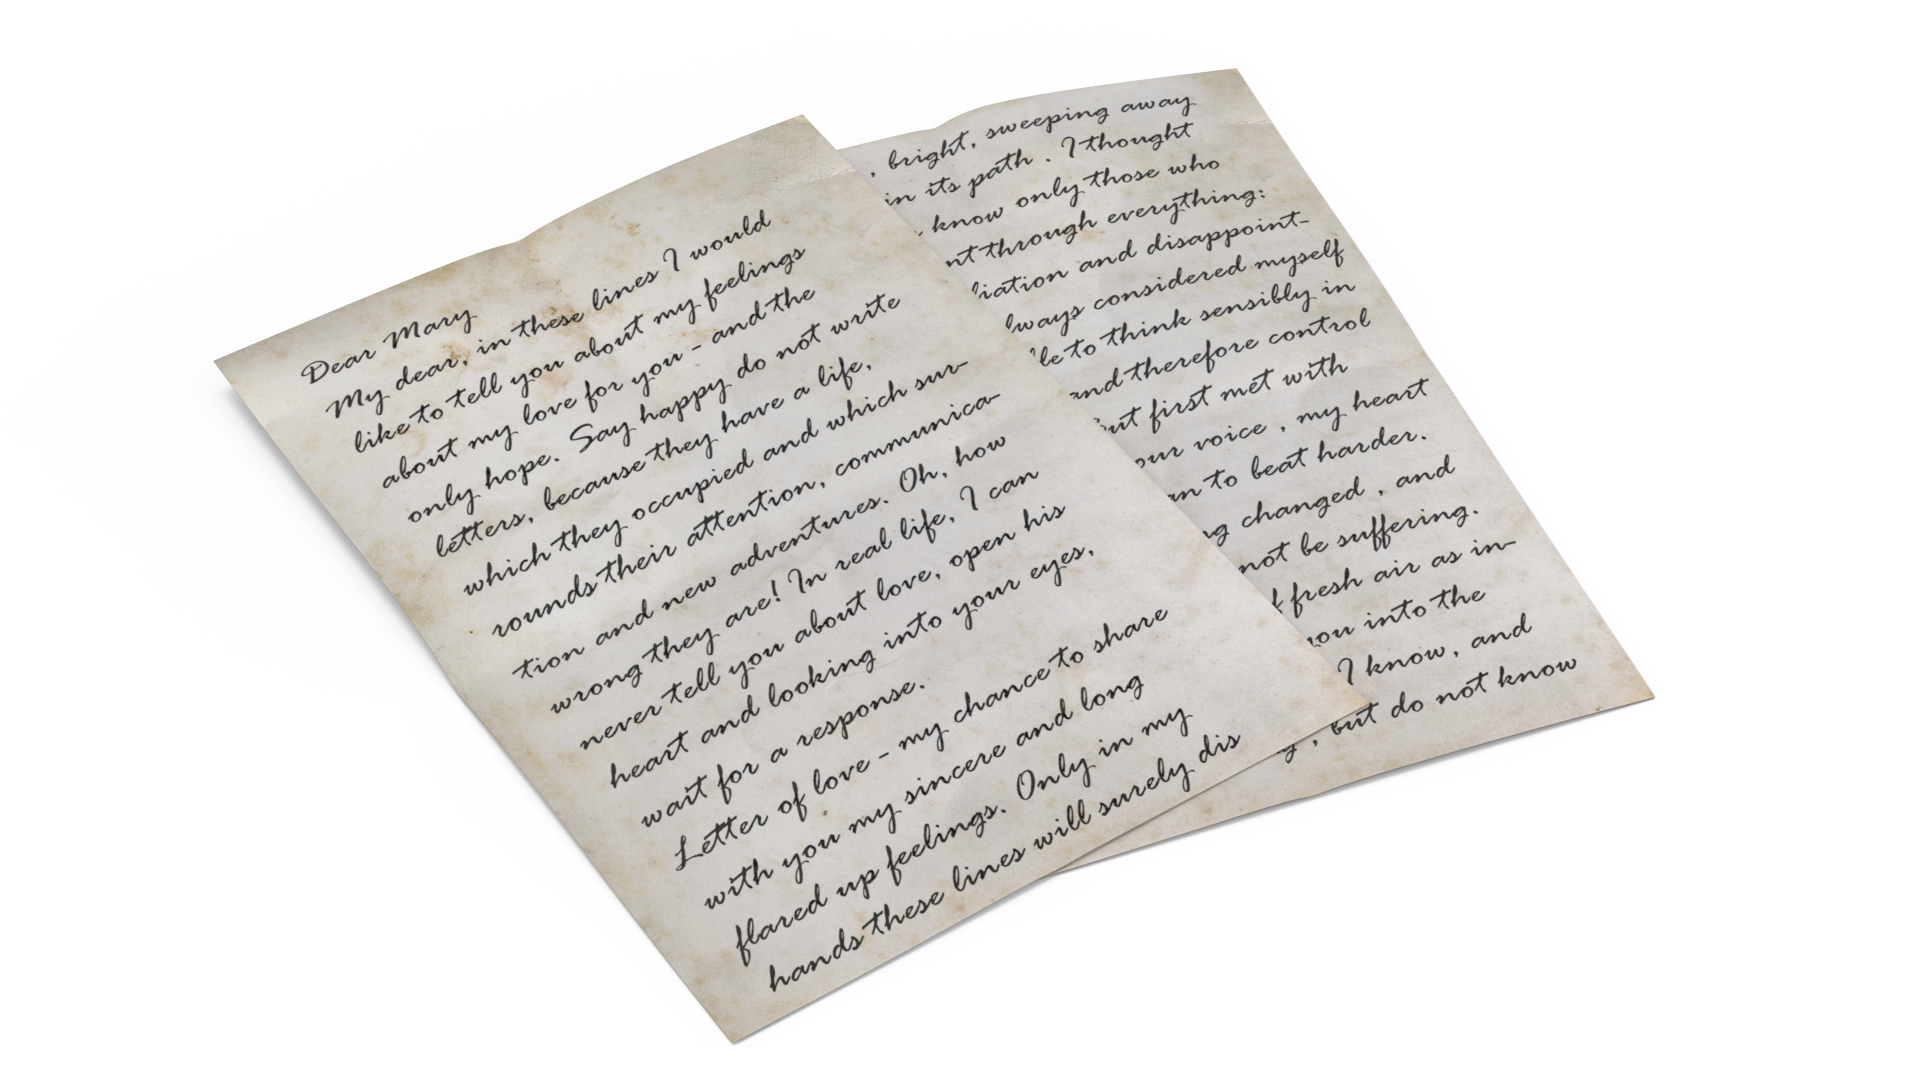 Dear Mary
My dear, in these lines I would
like to tell you about my feelings
about my love for you - and the
only hope. Say happy do not write
letters, because they have a life,
which they occupied and which sur-
rounds their attention, communica-
tion and new adventures. Oh, how
wrong they are! In real life, I can
never tell you about love, open his
heart and looking into your eyes,
wait for a response.
Letter of love - my chance to share
with you my sincere and long
flared up feelings. Only in my
hands these lines will surely dis
, bright, sweeping away
in its path . I thought
know only those who
nt through everything:
liation and disappoint-
lways considered myself
le to think sensibly in
and therefore control
but first met with
our voice , my heart
an to beat harder.
ng changed , and
not be suffering.
f fresh air as in-
you into the
I know, and
, but do not know